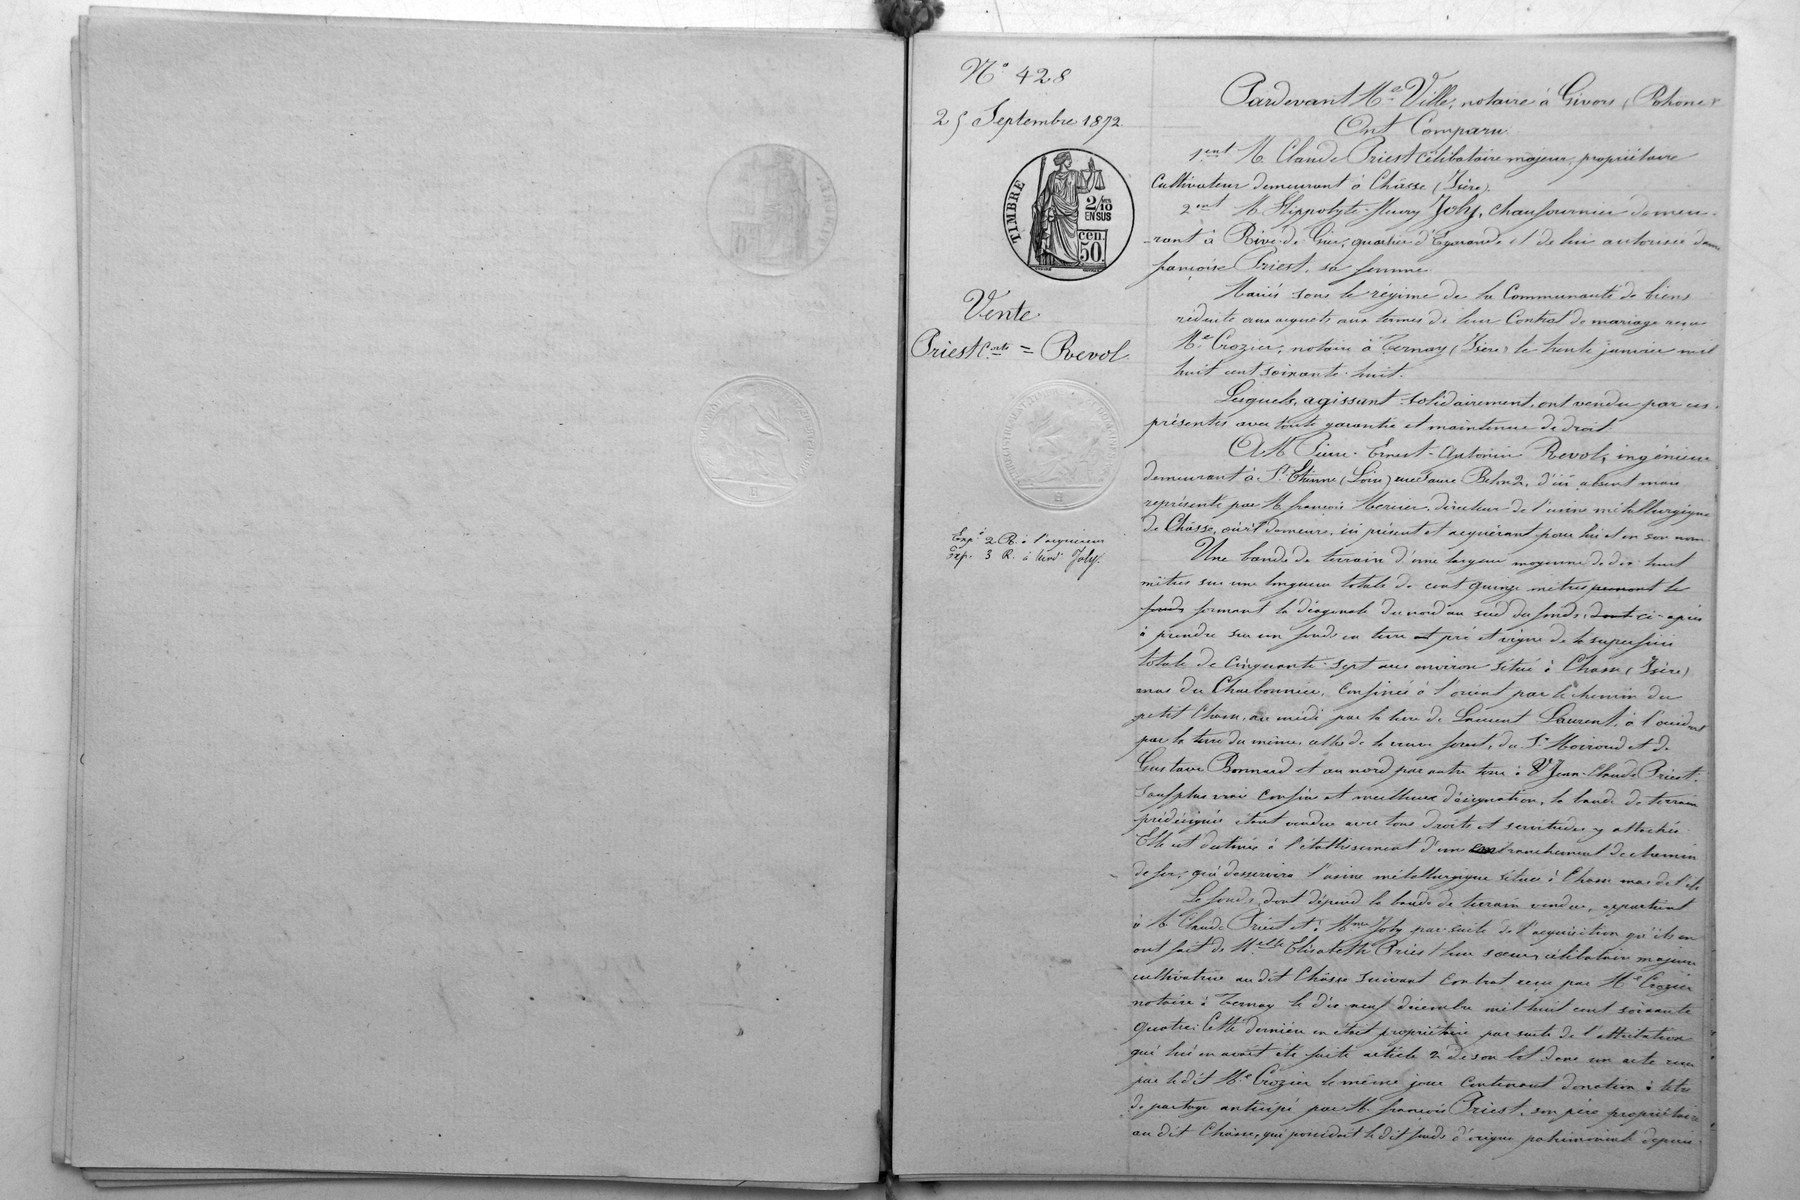 N° 428
25 Septembre 1872
TIMBRE
2/10
EN SUS
CEN.
50.
Vente
Priest & Crts = Revol
Exp. 2 R. à l'acquéreur
Exp. 3 R. à Joly.
Pardevant Me Ville, notaire à Givors (Rhône)
Ont Comparu
1ent M. Claude Priest célibataire majeur, propriétaire
cultivateur demeurant à Chasse (Isère).
2ent M. Hippolyte-Fleury Joly, chaufournier demeu-
-rant à Rive-de-Gier, quartier d'Egarande et de lui autorisée dame
françoise Priest, sa femme
Mariés sous le régime de la Communauté de biens
réduite aux acquets aux termes de leur Contrat de mariage reçu
Me Crozier, notaire à Ternay (Isère) le trente janvier mil
huit cent soixante-huit.
Lesquels, agissant solidairement, ont vendu par ces
présentes avec toute garantie et maintenue de droit
A M. Pierre-Ernest-Antonin Revol, ingénieur
demeurant à St Etienne (Loire) rue Faure Belon 2, d'ici absent mais
représenté par M. françois Mercier, directeur de l'usine métallurgique
de Chasse, où il demeure, ici présent et acquérant pour lui et en son nom
Une bande de terrain d'une largeur moyenne de dix huit
mètres sur une longueur totale de cent quinze mètres prenant le
fonds formant la diagonale du nord au sud du fonds, dont ci-après
à prendre sur un fonds en terre et pré et vigne de la superficie
totale de Cinquante-sept ares environ situé à Chasse (Isère)
mas du Charbonnier, confinée à l'orient par le chemin du
petit Chasse, au midi par la terre de Laurent Laurent, à l'occident
par la terre du même, celles de la veuve forest, du Sr Moiroud et de
Gustave Bonnard et au nord par autre terre à Jean-Claude Priest.
Sauf plus vrais confins et meilleure désignation, la bande de terrain
prédésignée étant vendue avec tous droits et servitudes y attachés
Elle est destinée à l'établissement d'un embranchement de chemin
de fer, qui desservira l'usine métallurgique située à Chasse mas de l'île
Le fonds, dont dépend la bande de terrain vendue, appartient
à M. Claude Priest et à Mme Joly par suite de l'acquisition qu'ils en
ont fait de Melle Elisabeth Priest leur sœur, célibataire majeure
cultivatrice au dit Chasse suivant contrat reçu par Me Crozier
notaire à Ternay le dix-neuf décembre mil huit cent soixante
quatre. Cette dernière en était propriétaire par suite de l'attribution
qui lui en avait été faite article 2 de son lot dans un acte reçu
par le dit Me Crozier le même jour Contenant donation à titre
de partage anticipé par M. françois Priest, son père propriétaire
au dit Chasse, qui possédait le dit fonds d'origine patrimoniale depuis